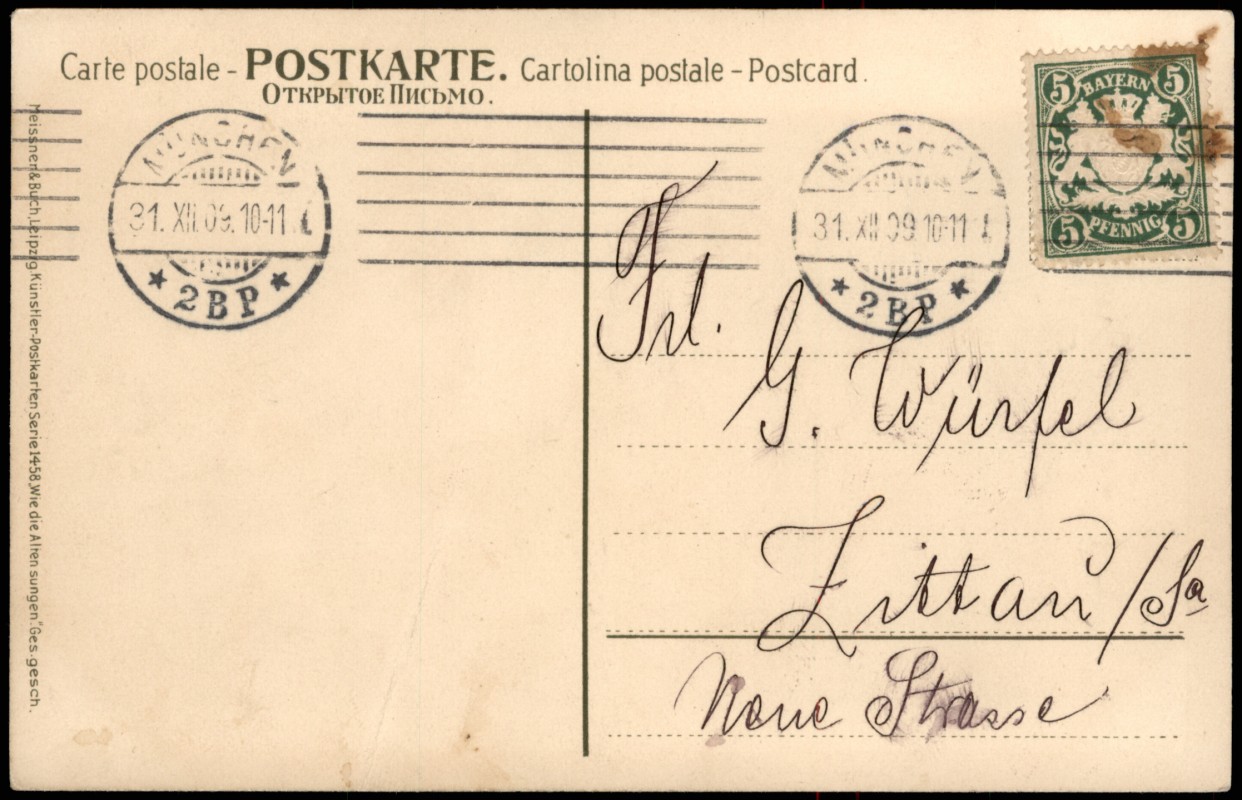 Carte postale - POSTKARTE. Cartolina postale - Postcard.
ОТКРЫТОЕ ПИСЬМО.
MÜNCHEN
31. XII. 09. 10-11
2 B P
MÜNCHEN
31. XII 09 10-11
2 B P
BAYERN
5 5
5 5
PFENNIG
Frl.
G. Würfel
Zittau / Sa
Neue Strasse
Meissner & Buch, Leipzig Künstler-Postkarten Serie 1458 „Wie die Alten sungen". Ges. gesch.